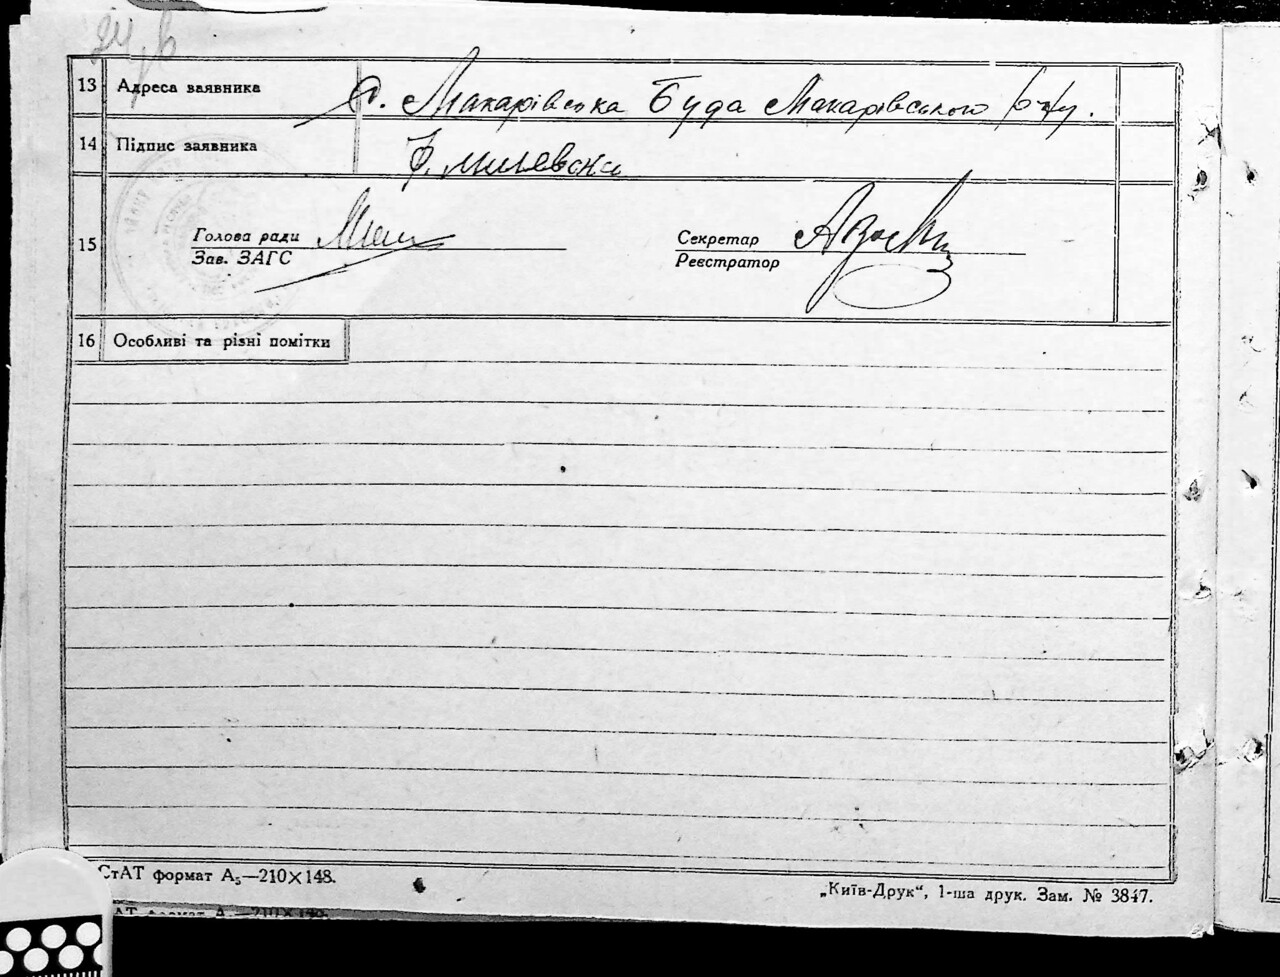 24
13 Адреса заявника с. Макарівська Буда Макарівського р-ну.
14 Підпис заявника
15
Голова ради
Зав. ЗАГС
Секретар
Реєстратор
16 Особливі та різні помітки
СтАТ формат А₅—210×148.
„Київ-Друк“, 1-ша друк. Зам. № 3847.